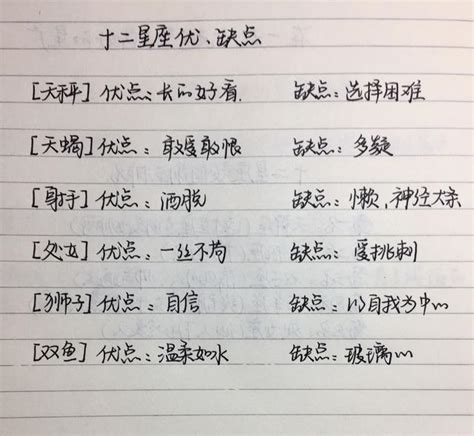 十二星座优、缺点
[天秤] 优点：长的好看. 缺点：选择困难
[天蝎] 优点：敢爱敢恨 缺点：多疑
[射手] 优点：洒脱 缺点：懒,神经大条
[处女] 优点：一丝不苟 缺点：爱挑刺
[狮子] 优点：自信 缺点：以自我为中心
[双鱼] 优点：温柔如水 缺点：玻璃心